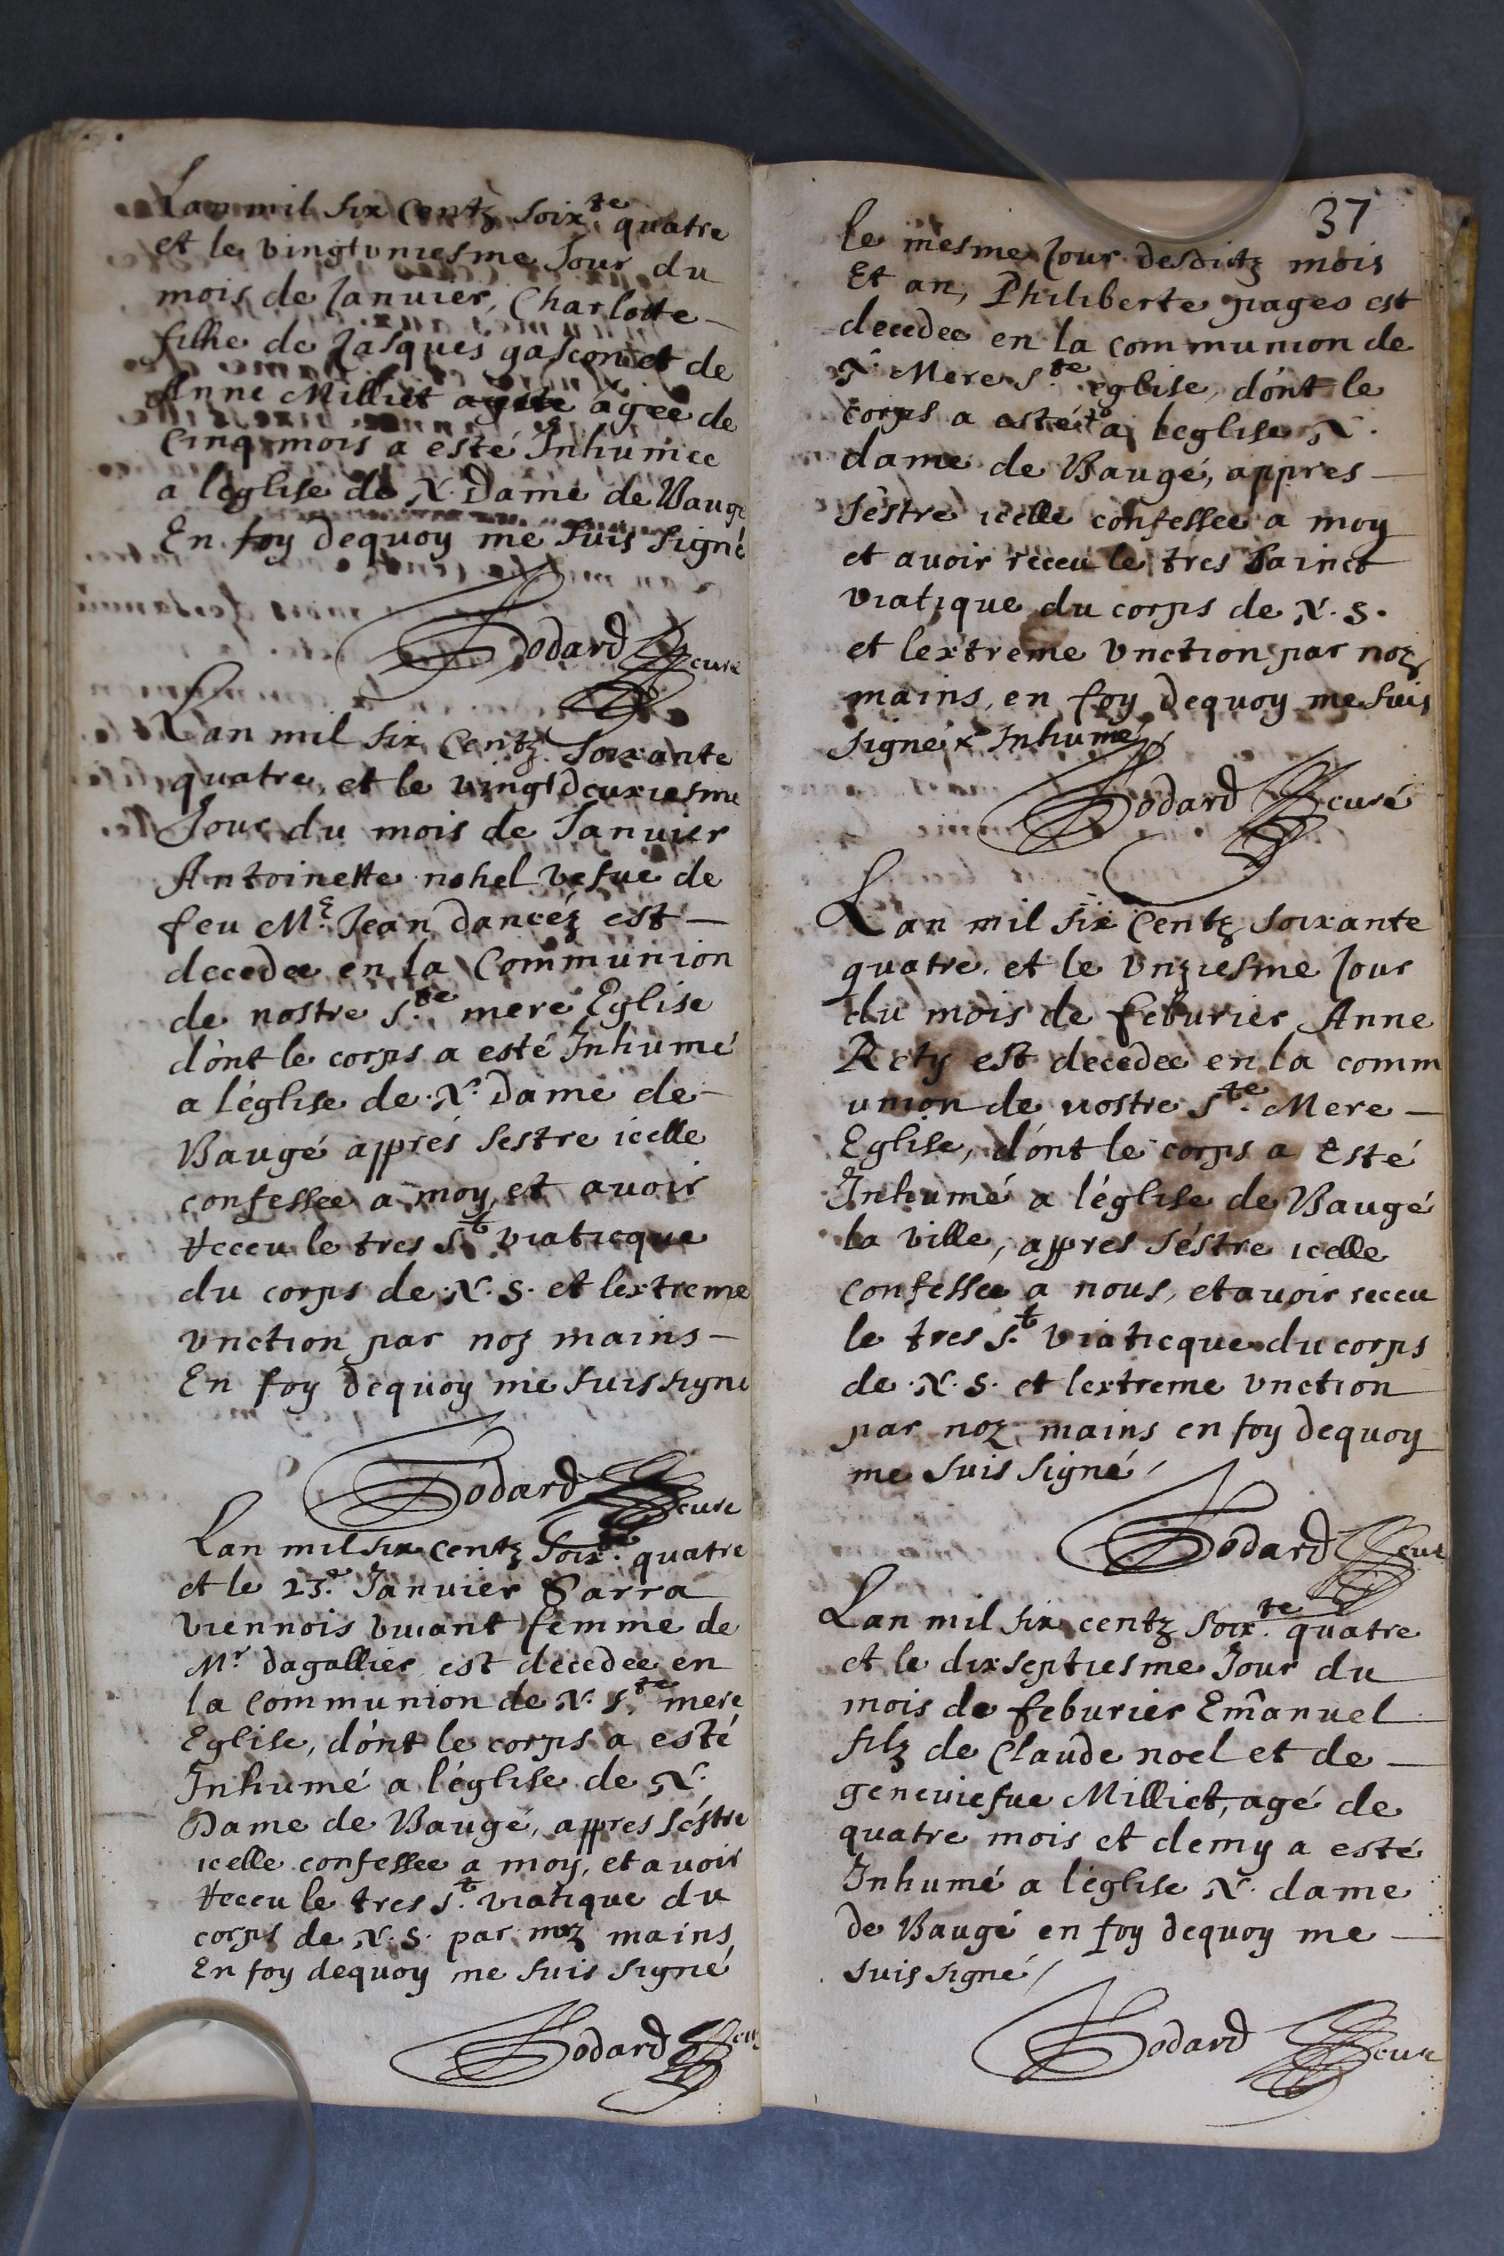 Lan mil six Centz soix.te quatre
et le vingtvniesme Jour du
mois de Januier, Charlotte
fillie de Jasques gascon et de
Anne Milliet agee de
Cinq mois a esté Inhumee
a léglise de N. Dame de Baugé
En foy dequoy me suis signé
Godard curé
Lan mil six Centz soixante
quatre, et le vingtdeuxiesme
Jour du mois de Januier
Antoinette nohel vefue de
feu M.e Jean dancéz est
decedee en la Communion
de nostre S.te mere Eglise
dónt le corps a esté Inhumé
a léglise de N. Dame de
Baugé apprés sestre icelle
confessee a moy, et avoir
receu le tres S.t viaticque
du corps de N. S. et lextreme
vnction par noz mains
En foy dequoy me suis signé
Godard curé
Lan mil six centz soix.te quatre
et le 23.e Januier Sarra
viennois viuant femme de
M.r dagallier est decedee en
la communion de N. S.te mere
Eglise, dónt le corps a esté
Inhumé a léglise de N.
Dame de Baugé, appres séstre
icelle confessee a moy, et avoir
receu le tres S.t viatique du
corps de N. S. par noz mains
En foy dequoy me suis signé
Godard curé
37
le mesme Jour desditz mois
Et an, Philiberte pages est
decedee en la communion de
N. Mere S.te eglise, dónt le
corps a esté x a leglise N.
dame de Baugé, appres
séstre icelle confessee a moy
et avoir receu le tres sainct
viatique du corps de N. S.
et lextreme vnction par noz
mains, en foy dequoy me suis
signé x Inhumé
Godard curé
Lan mil six Centz soixante
quatre, et le vnziesme Jour
du mois de feburier Anne
Rety est decedee en la comm
union de nostre S.te Mere
Eglise, dónt le corps a Esté
Inhumé a léglise de Baugé
la ville, appres séstre icelle
confessee a nous, et avoir receu
le tres S.t viaticque du corps
de N. S. et lextreme vnction
par noz mains en foy dequoy
me suis signé
Godard curé
Lan mil six centz soix.te quatre
et le dixseptiesme Jour du
mois de feburier Emânuel
filz de Claude noel et de
geneuiefue Milliet, agé de
quatre mois et demy a esté
Inhumé a léglise N. dame
de Baugé en foy dequoy me
suis signé
Godard curé